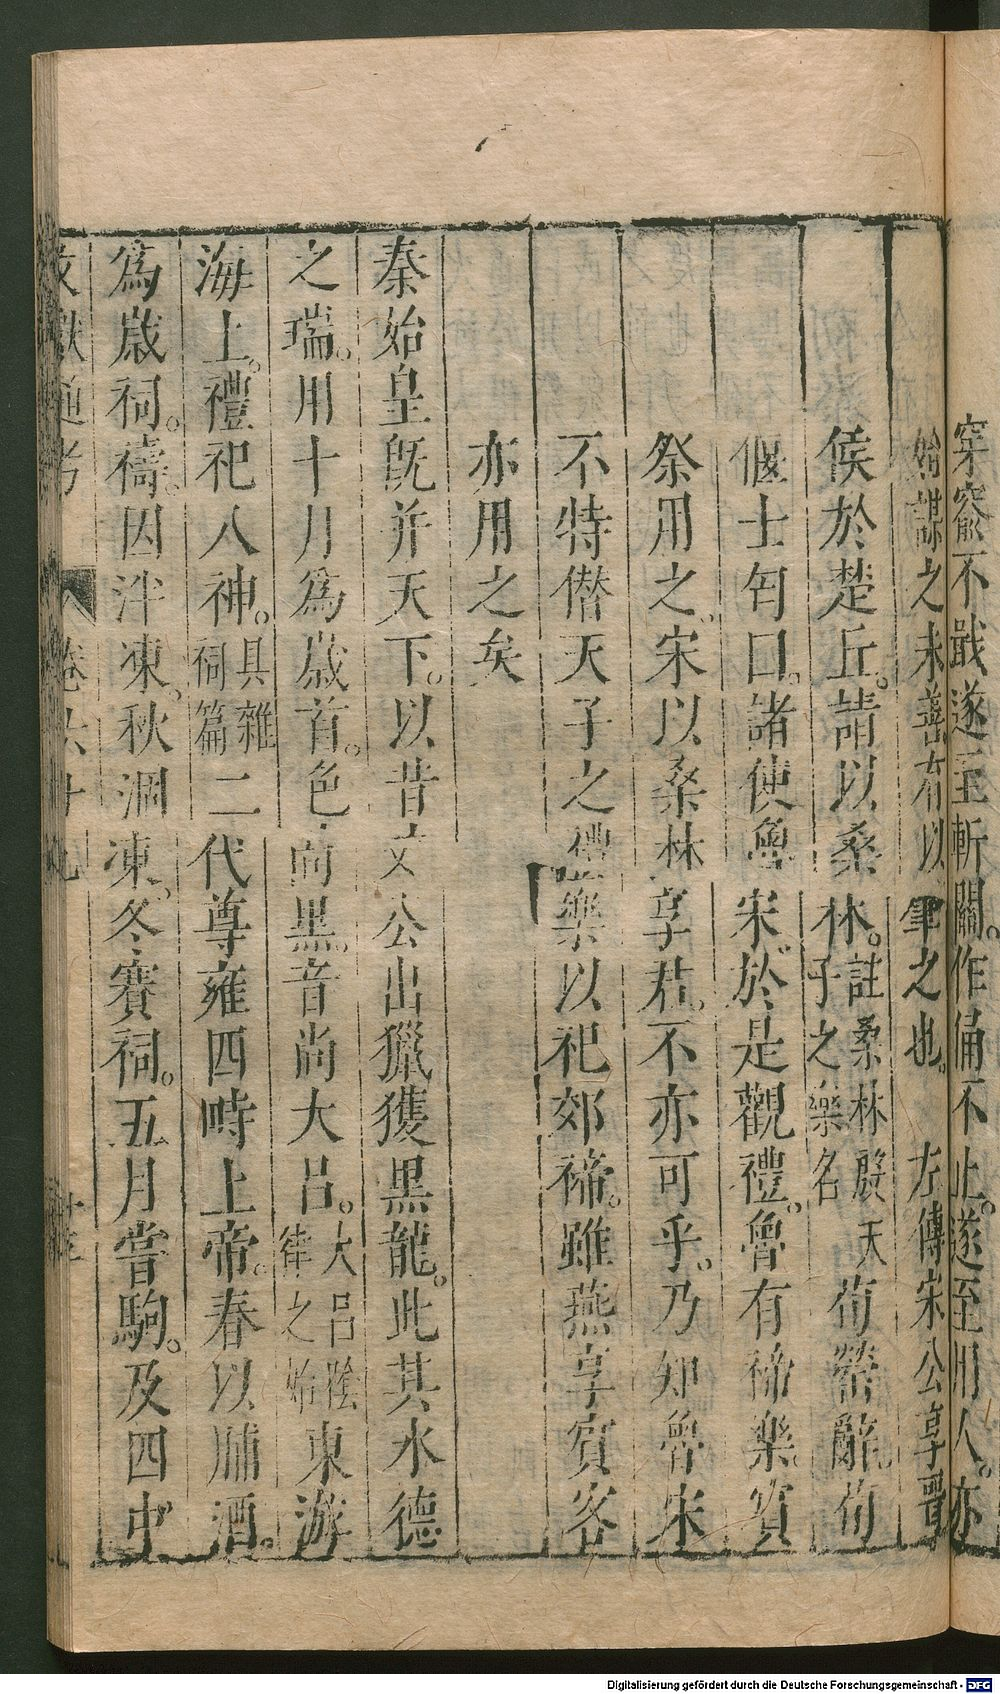 穿窬不戢遂至斬關。作俑不止。遂至用人。亦
始謀之未善有以肇之也。左傳宋公享晋
侯於楚丘。請以桑林。註桑林殷天子之樂名荀罃辭。荀
偃士匄曰。諸侯魯宋。於是觀禮。魯有禘樂。賓
祭用之。宋以桑林享君。不亦可乎。乃知魯宋
不特僣天子之禮樂以祀郊禘。雖燕享賓客
亦用之矣
秦始皇旣并天下。以昔文公出獵獲黒龍。此其水德
之瑞。用十月爲歳首。色尚黒。音尚大吕。大吕隂律之始東游
海上。禮祀八神。具雜祠篇二代尊雍四畤上帝。春以脯酒。
爲歳祠。禱。因泮凍。秋涸凍。冬賽祠。五月嘗駒。及四中
文獻通考 卷六十九
Digitalisierung gefördert durch die Deutsche Forschungsgemeinschaft - DFG